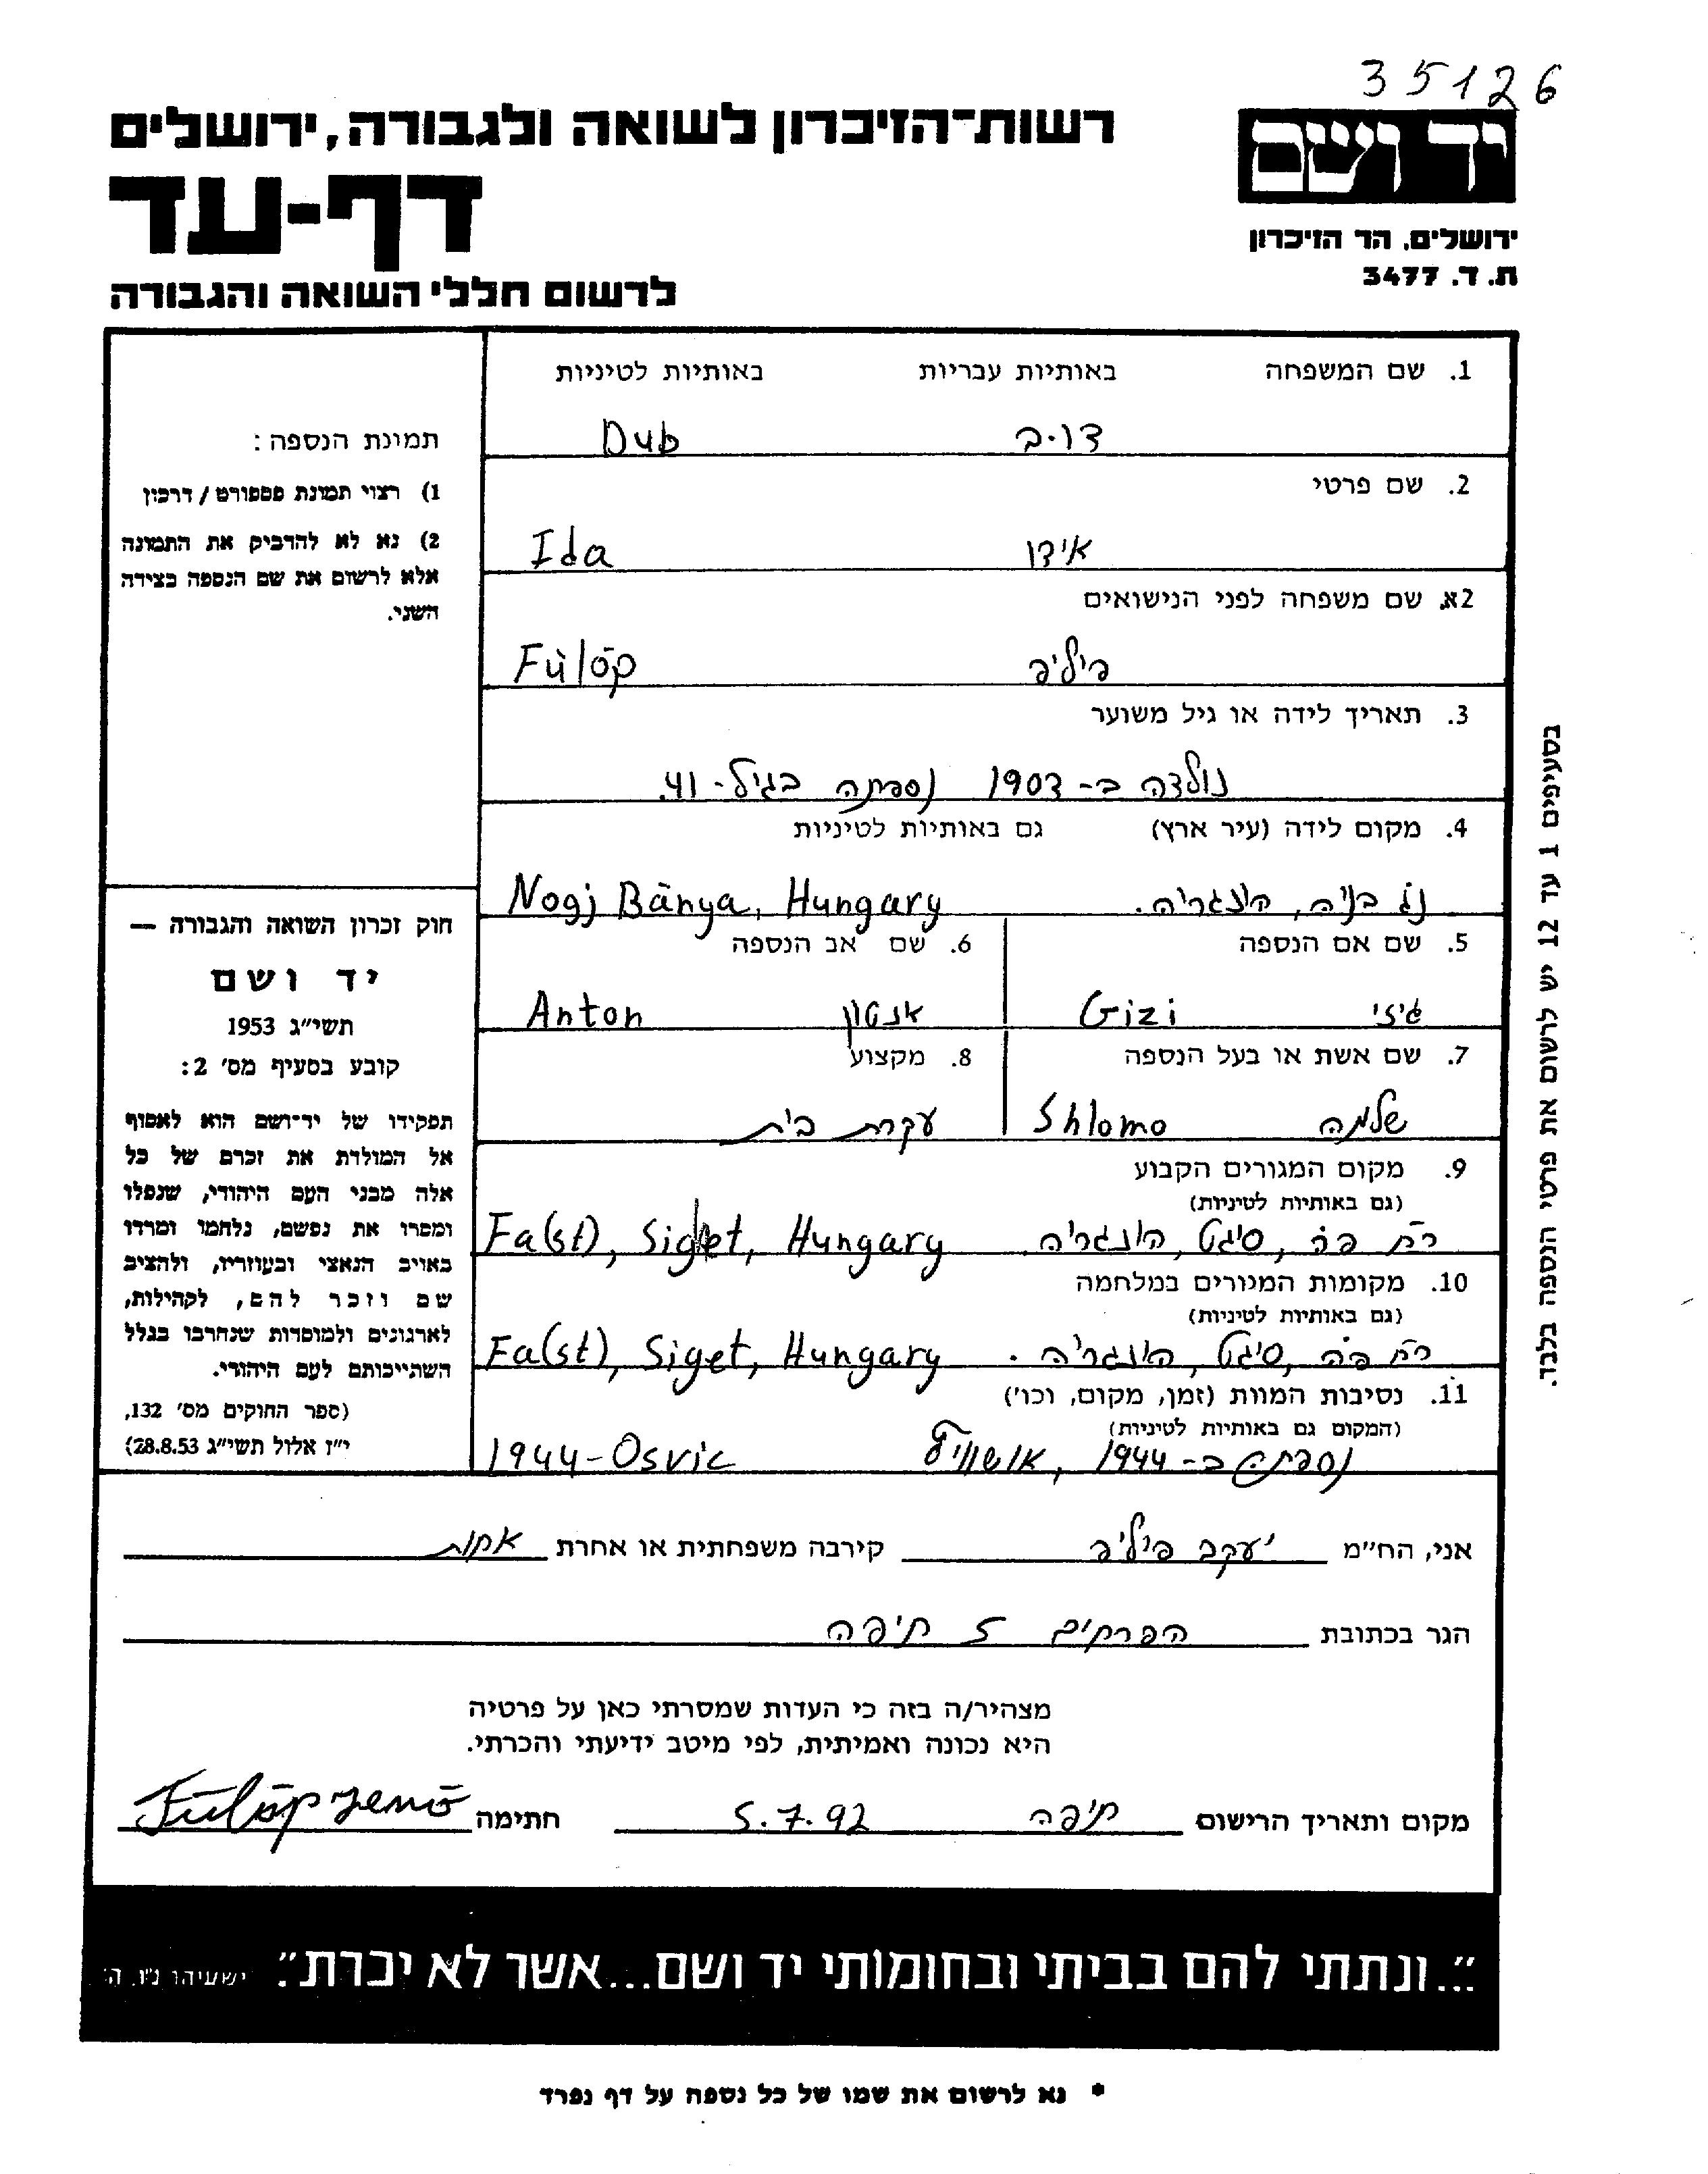 35126
רשות־הזיכרון לשואה ולגבורה, ירושלים
יד ושם
דף-עד
ירושלים, הר הזיכרון
ת. ד. 3477
לרשום חללי השואה והגבורה
1. שם המשפחה באותיות עבריות באותיות לטיניות
דו.ב Dub
2. שם פרטי
אידן Ida
2א. שם משפחה לפני הנישואים
פיליפ Fülöp
3. תאריך לידה או גיל משוער
נולדה ב- 1903 נספתה בגיל - 41.
4. מקום לידה (עיר ארץ) גם באותיות לטיניות
נג' בניה, הונגריה. Nogj Bánya, Hungary
5. שם אם הנספה 6. שם אב הנספה
גיזי Gizi אנטון Anton
7. שם אשת או בעל הנספה 8. מקצוע
שלמה Shlomo עקרת בית
9. מקום המגורים הקבוע
(גם באותיות לטיניות)
סיגט, הונגריה. Fa(st), Siget, Hungary
10. מקומות המגורים במלחמה
(גם באותיות לטיניות)
סיגט, הונגריה. Fa(st), Siget, Hungary
11. נסיבות המוות (זמן, מקום, וכו')
(המקום גם באותיות לטיניות)
נספתה ב- 1944, אושוויץ 1944-Osvic
תמונת הנספה:
1) רצוי תמונת פספורט / דרכון
2) נא לא להדביק את התמונה
אלא לרשום את שם הנספה בצידה
השני.
חוק זכרון השואה והגבורה —
יד ושם
תשי"ג 1953
קובע בסעיף מס' 2:
תפקידו של יד־ושם הוא לאסוף
אל המולדת את זכרם של כל
אלה מבני העם היהודי, שנפלו
ומסרו את נפשם, נלחמו ומרדו
באויב הנאצי ובעוזריו, ולהציב
שם וזכר להם, לקהילות,
לארגונים ולמוסדות שנחרבו בגלל
השתייכותם לעם היהודי.
(ספר החוקים מס' 132,
י"ז אלול תשי"ג 28.8.53)
בסעיפים 1 עד 12 יש לרשום את פרטי הנספה בלבד.
אני, הח"מ יעקב פיליפ קירבה משפחתית או אחרת אחות
הגר בכתובת הפרחים 5 חיפה
מצהיר/ה בזה כי העדות שמסרתי כאן על פרטיה
היא נכונה ואמיתית, לפי מיטב ידיעתי והכרתי.
מקום ותאריך הרישום חיפה 5.7.92 חתימה Fülöp Jenő
"...ונתתי להם בביתי ובחומותי יד ושם...אשר לא יכרת". ישעיהו נ"ו, ה'
* נא לרשום את שמו של כל נספה על דף נפרד